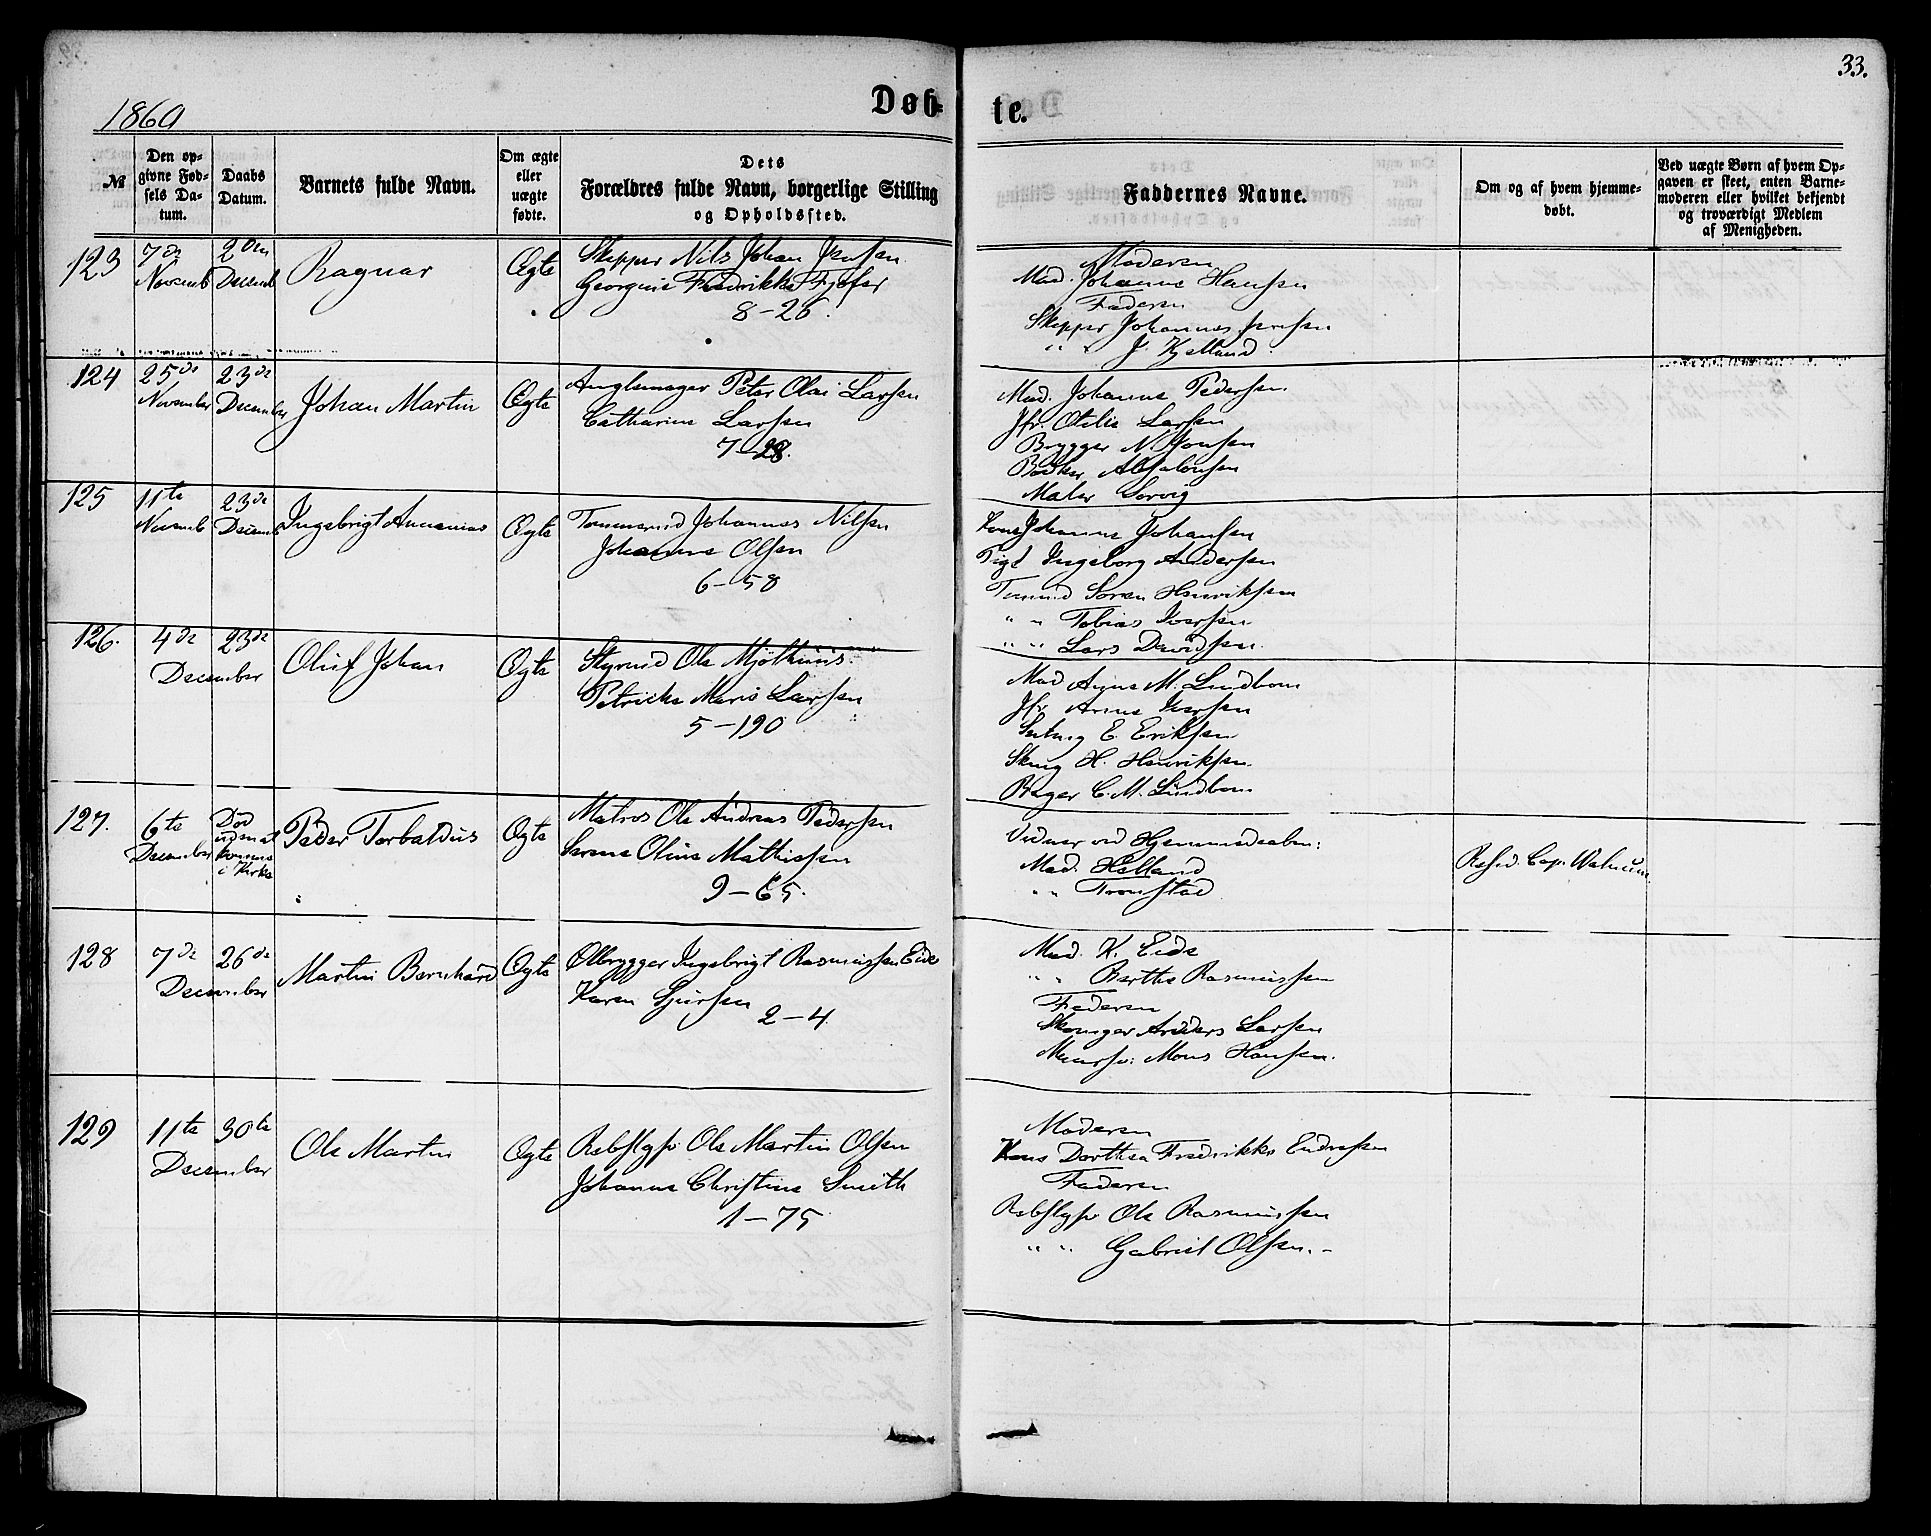 33.
1860
Døb-
te.
№
Den op-
givne Fød-
sels Da-
tum.
Daabs
Datum.
Barnets fulde Navn.
Om ægte
eller
uægte
fødte.
Dets
Forældres fulde Navn, borgerlige Stilling
og Opholdssted.
Faddernes Navne.
Om og af hvem hjemme-
døbt.
Ved uægte Børn af hvem Op-
gaven er skeet, enten Barne-
moderen eller hvilket bekjendt
og troværdigt Medlem
af Menigheden.
123
7de
Novemb
2den
Decemb
Ragnar
Ægte
Skipper Nils Johan Jensen
Georgine Fredrikke
8-26.
Moderen
Mad. Johanne Hansen
Faderen
Skipper Johannes Jensen
" " J. Kjelland.
124
25de
November
23de
December
Johan Martin
Ægte
Anglemager Peter Olai Larsen
Cathrine Larsen
7-28.
Mad. Johanne Pedersen
Jfr. Otilie Larsen
Brygger N. Jonsen
Bødker Absalonsen
Maler Sørvig
125
11te
Novemb
23de
Decemb
Ingebrigt Annanias
Ægte
Tømmermd Johannes Nilsen
Johanne Olsen
6-58
Kone Johanne Johansen
Pige Ingeborg Andersen
Tømmd Søren Henriksen
" " Tobias Iversen
" " Lars Davidsen.
126.
4de
23de
December
Oluf Johan
Ægte
Styrmd Ole Mjølhuus.
Petrikke Marie Larsen
5-190
Mad Agne M. Lundbom
Jfr. Anne Iversen
E. Eriksen
H. Henriksen.
Bager C. M. Lundbom
127.
6te
December
Død
uden at
komme
i Kirke
Peder Torbaldus
Ægte
Matros Ole Andreas Pedersen
Serene Oline Mathissen
9-65.
Vidner ved Hjemmedaaben:
Mad. Helland
" " Tronstad
Resid. Cap. Walnum.
128
7de
26de
December
Martin Bernhard
Ægte
Ølbrygger Ingebrigt Rasmussen Eide
Karen Sjursen
2-4
Mad. K. Eide
" " Berthe Rasmussen
Faderen
Anders Larsen
Muursv: Mons Hansen.
129
11te
30te
December
Ole Martin
Ægte
Rebslgsv: Ole Martin Olsen
Johanne Christine Smith
1-75
Moderen
Kone Dorthea Fredrikke Endresen
Faderen
Rebslgsv: Ole Rasmussen
" " Gabriel Olsen.-